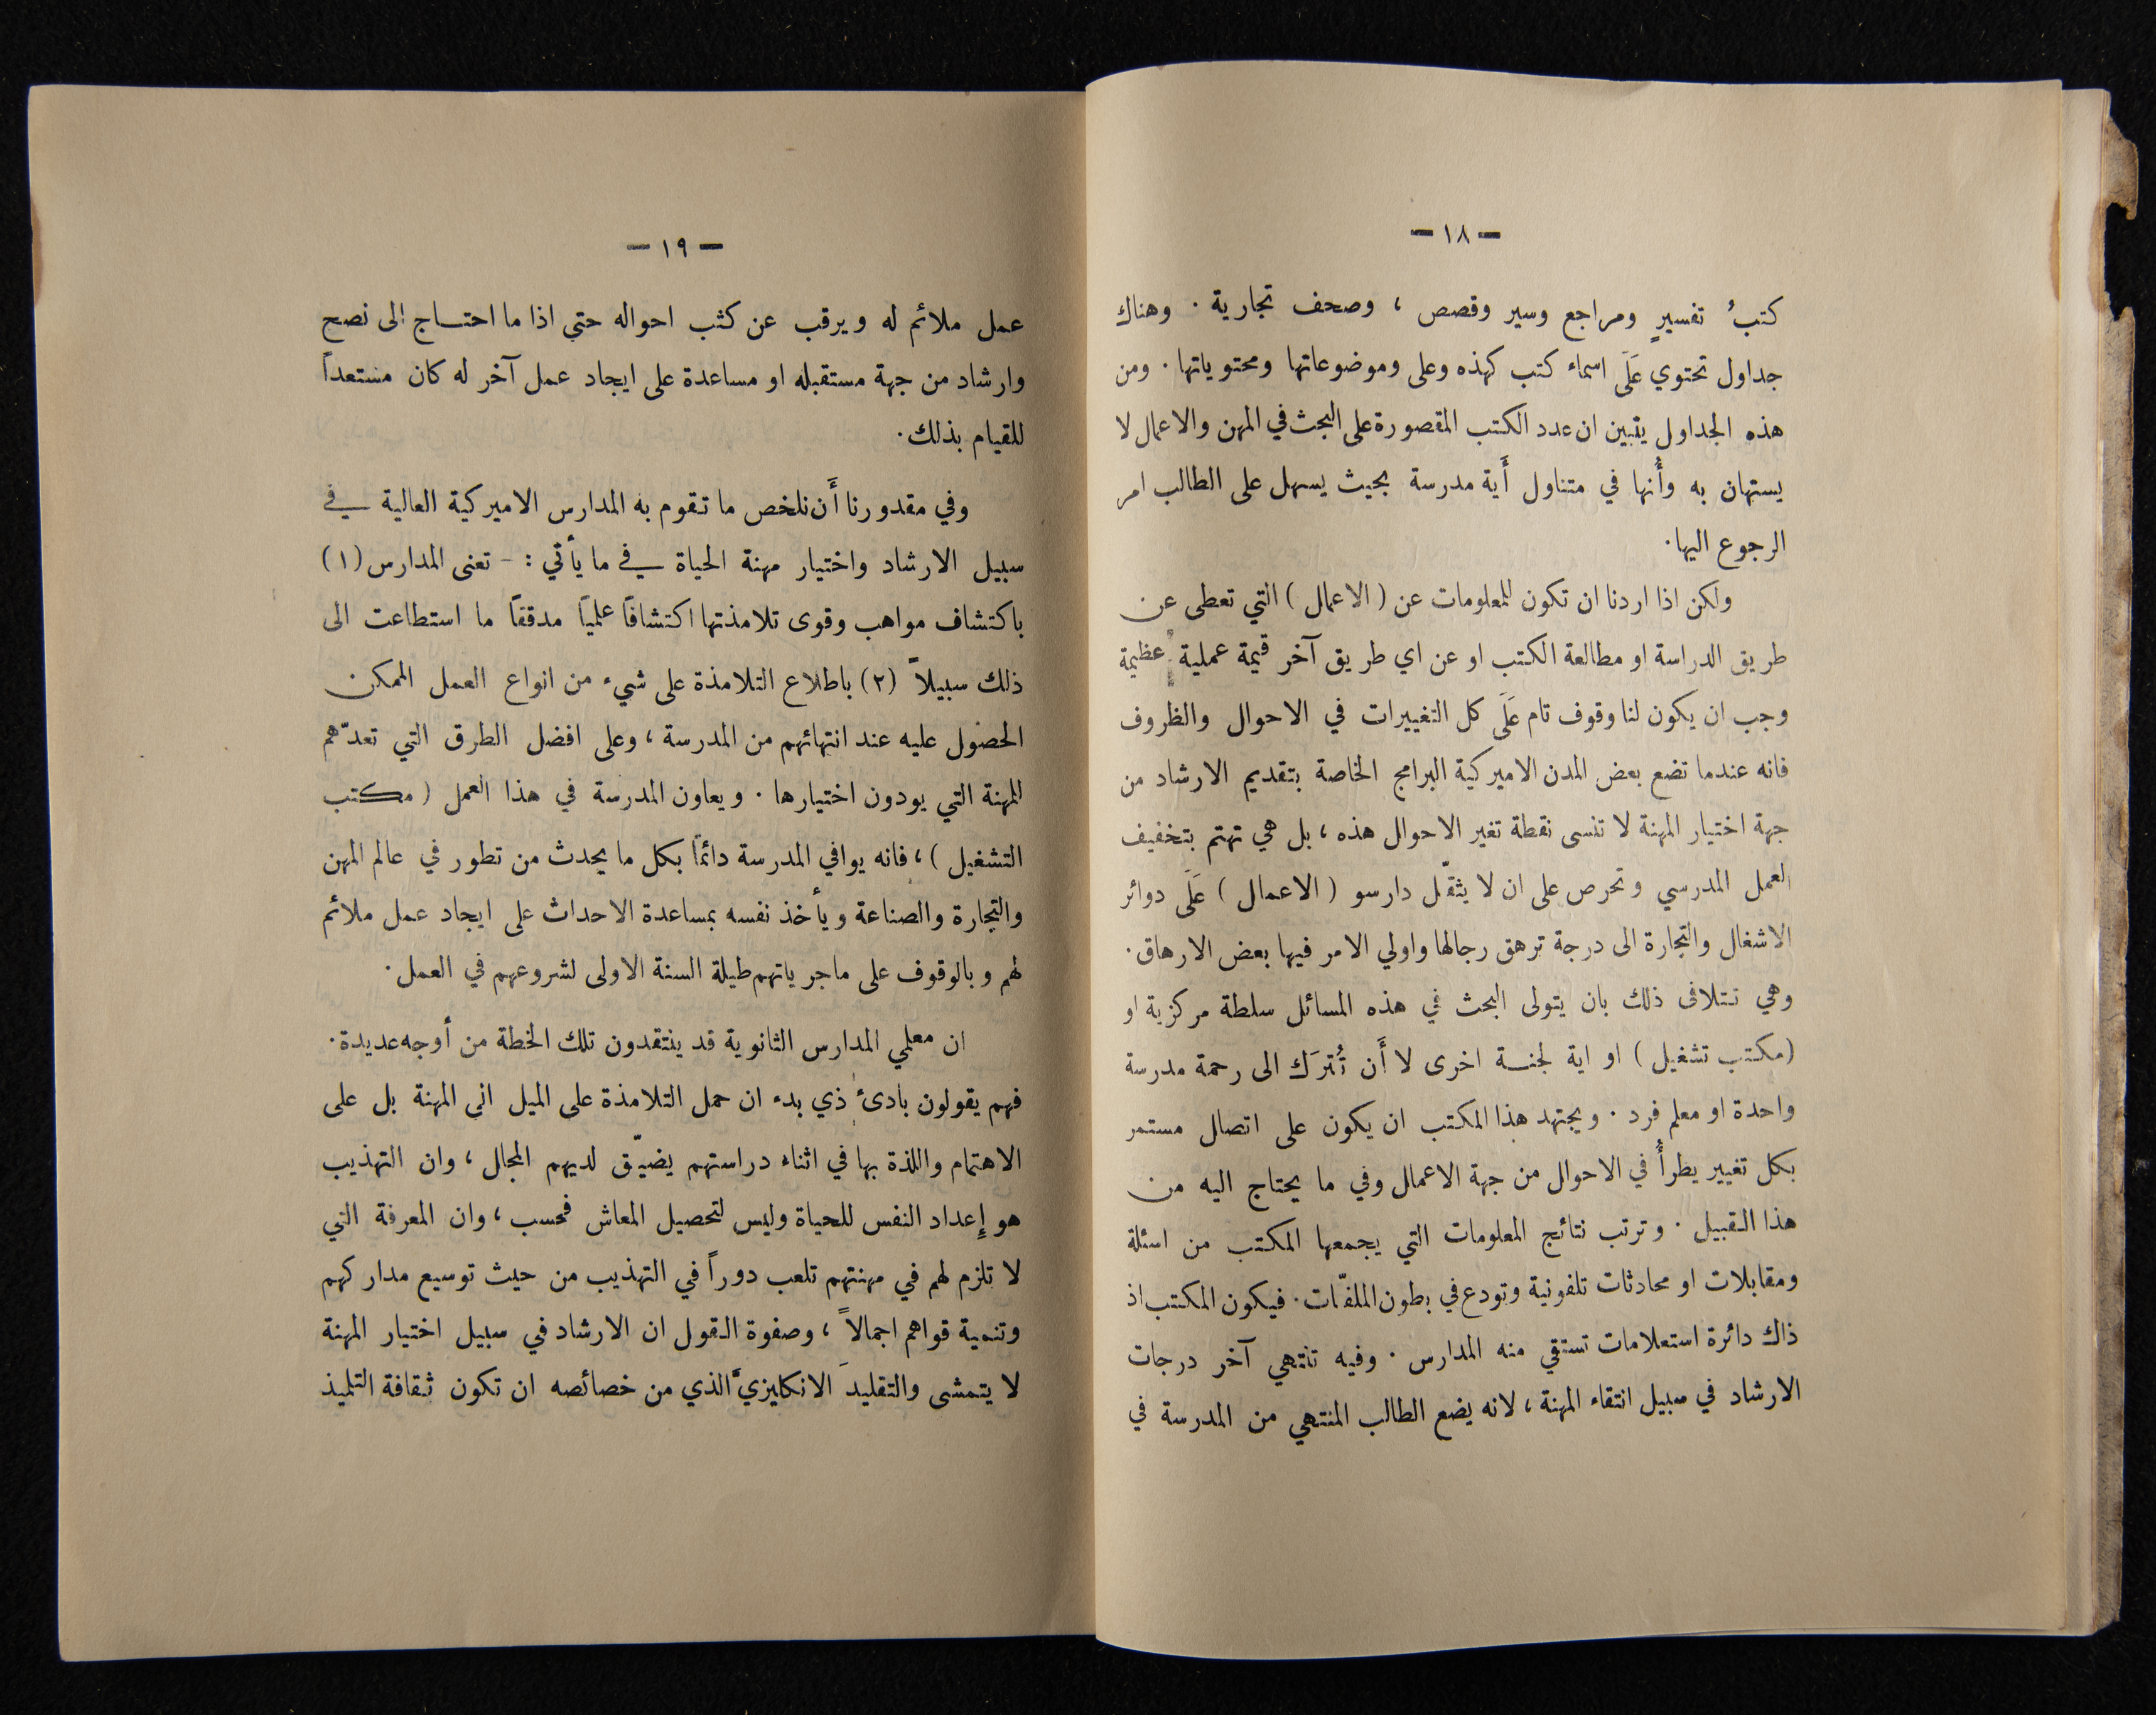 — ١٨ —
كتبُ تفسيرٍ ومراجع وسير وقصص ، وصحف تجارية . وهناك
جداول تحتوي عَلَى اسماء كتب كهذه وعلى وموضوعاتها ومحتوياتها . ومن
هذه الجداول يتبين ان عدد الكتب المقصورة على البحث في المهن والاعمال لا
يستهان به وأَنها في متناول أَية مدرسة بحيث يسهل على الطالب امر
الرجوع اليها .
ولكن اذا اردنا ان تكون للمعلومات عن ( الاعمال ) التي تعطى عن
طريق الدراسة او مطالعة الكتب او عن اي طريق آخر قيمة عملية عظيمة
وجب ان يكون لنا وقوف تام عَلَى كل التغييرات في الاحوال والظروف
فانه عندما تضع بعض المدن الاميركية البرامج الخاصة بتقديم الارشاد من
جهة اختيار المهنة لا تنسى نقطة تغير الاحوال هذه ، بل هي تهتم بتخفيف
العمل المدرسي وتحرص على ان لا يثقّل دارسو ( الاعمال ) عَلَى دوائر
الاشغال والتجارة الى درجة ترهق رجالها واولي الامر فيها بعض الارهاق .
وهي تتلافى ذلك بان يتولى البحث في هذه المسائل سلطة مركزية او
(مكتب تشغيل ) او اية لجنة اخرى لا أَن تُترَك الى رحمة مدرسة
واحدة او معلم فرد . ويجتهد هذا المكتب ان يكون على اتصال مستمر
بكل تغيير يطرأُ في الاحوال من جهة الاعمال وفي ما يحتاج اليه من
هذا القبيل . وترتب نتائج المعلومات التي يجمعها المكتب من اسئلة
ومقابلات او محادثات تلفونية وتودع في بطون الملفّات . فيكون المكتب اذ
ذاك دائرة استعلامات تستقي منه المدارس . وفيه تنتهي آخر درجات
الارشاد في سبيل انتقاء المهنة ، لانه يضع الطالب المنتهي من المدرسة في
— ١٩ —
عمل ملائم له ويرقب عن كثب احواله حتى اذا ما احتاج الى نصح
وارشاد من جهة مستقبله او مساعدة على ايجاد عمل آخر له كان مستعداً
للقيام بذلك .
وفي مقدورنا أَن نلخص ما تقوم به المدارس الاميركية العالية في
سبيل الارشاد واختيار مهنة الحياة في ما يأتي : - تعنى المدارس (١)
باكتشاف مواهب وقوى تلامذتها اكتشافاً علمياً مدققاً ما استطاعت الى
ذلك سبيلاً (٢) باطلاع التلامذة على شيء من انواع العمل الممكن
الحصول عليه عند انتهائهم من المدرسة ، وعلى افضل الطرق التي تعدّهم
للمهنة التي يودون اختيارها . ويعاون المدرسة في هذا العمل ( مكتب
التشغيل ) ، فانه يوافي المدرسة دائماً بكل ما يحدث من تطور في عالم المهن
والتجارة والصناعة ويأخذ نفسه بمساعدة الاحداث على ايجاد عمل ملائم
لهم وبالوقوف على ماجرياتهم طيلة السنة الاولى لشروعهم في العمل .
ان معلمي المدارس الثانوية قد ينتقدون تلك الخطة من أوجه عديدة .
فهم يقولون بادئ ذي بدء ان حمل التلامذة على الميل الى المهنة بل على
الاهتمام واللذة بها في اثناء دراستهم يضيّق لديهم المجال ، وان التهذيب
هو إِعداد النفس للحياة وليس لتحصيل المعاش فحسب ، وان المعرفة التي
لا تلزم لهم في مهنتهم تلعب دوراً في التهذيب من حيث توسيع مداركهم
وتنمية قواهم اجمالاً ، وصفوة القول ان الارشاد في سبيل اختيار المهنة
لا يتمشى والتقليدَ الانكليزيَّ الذي من خصائصه ان تكون ثقافة التلميذ